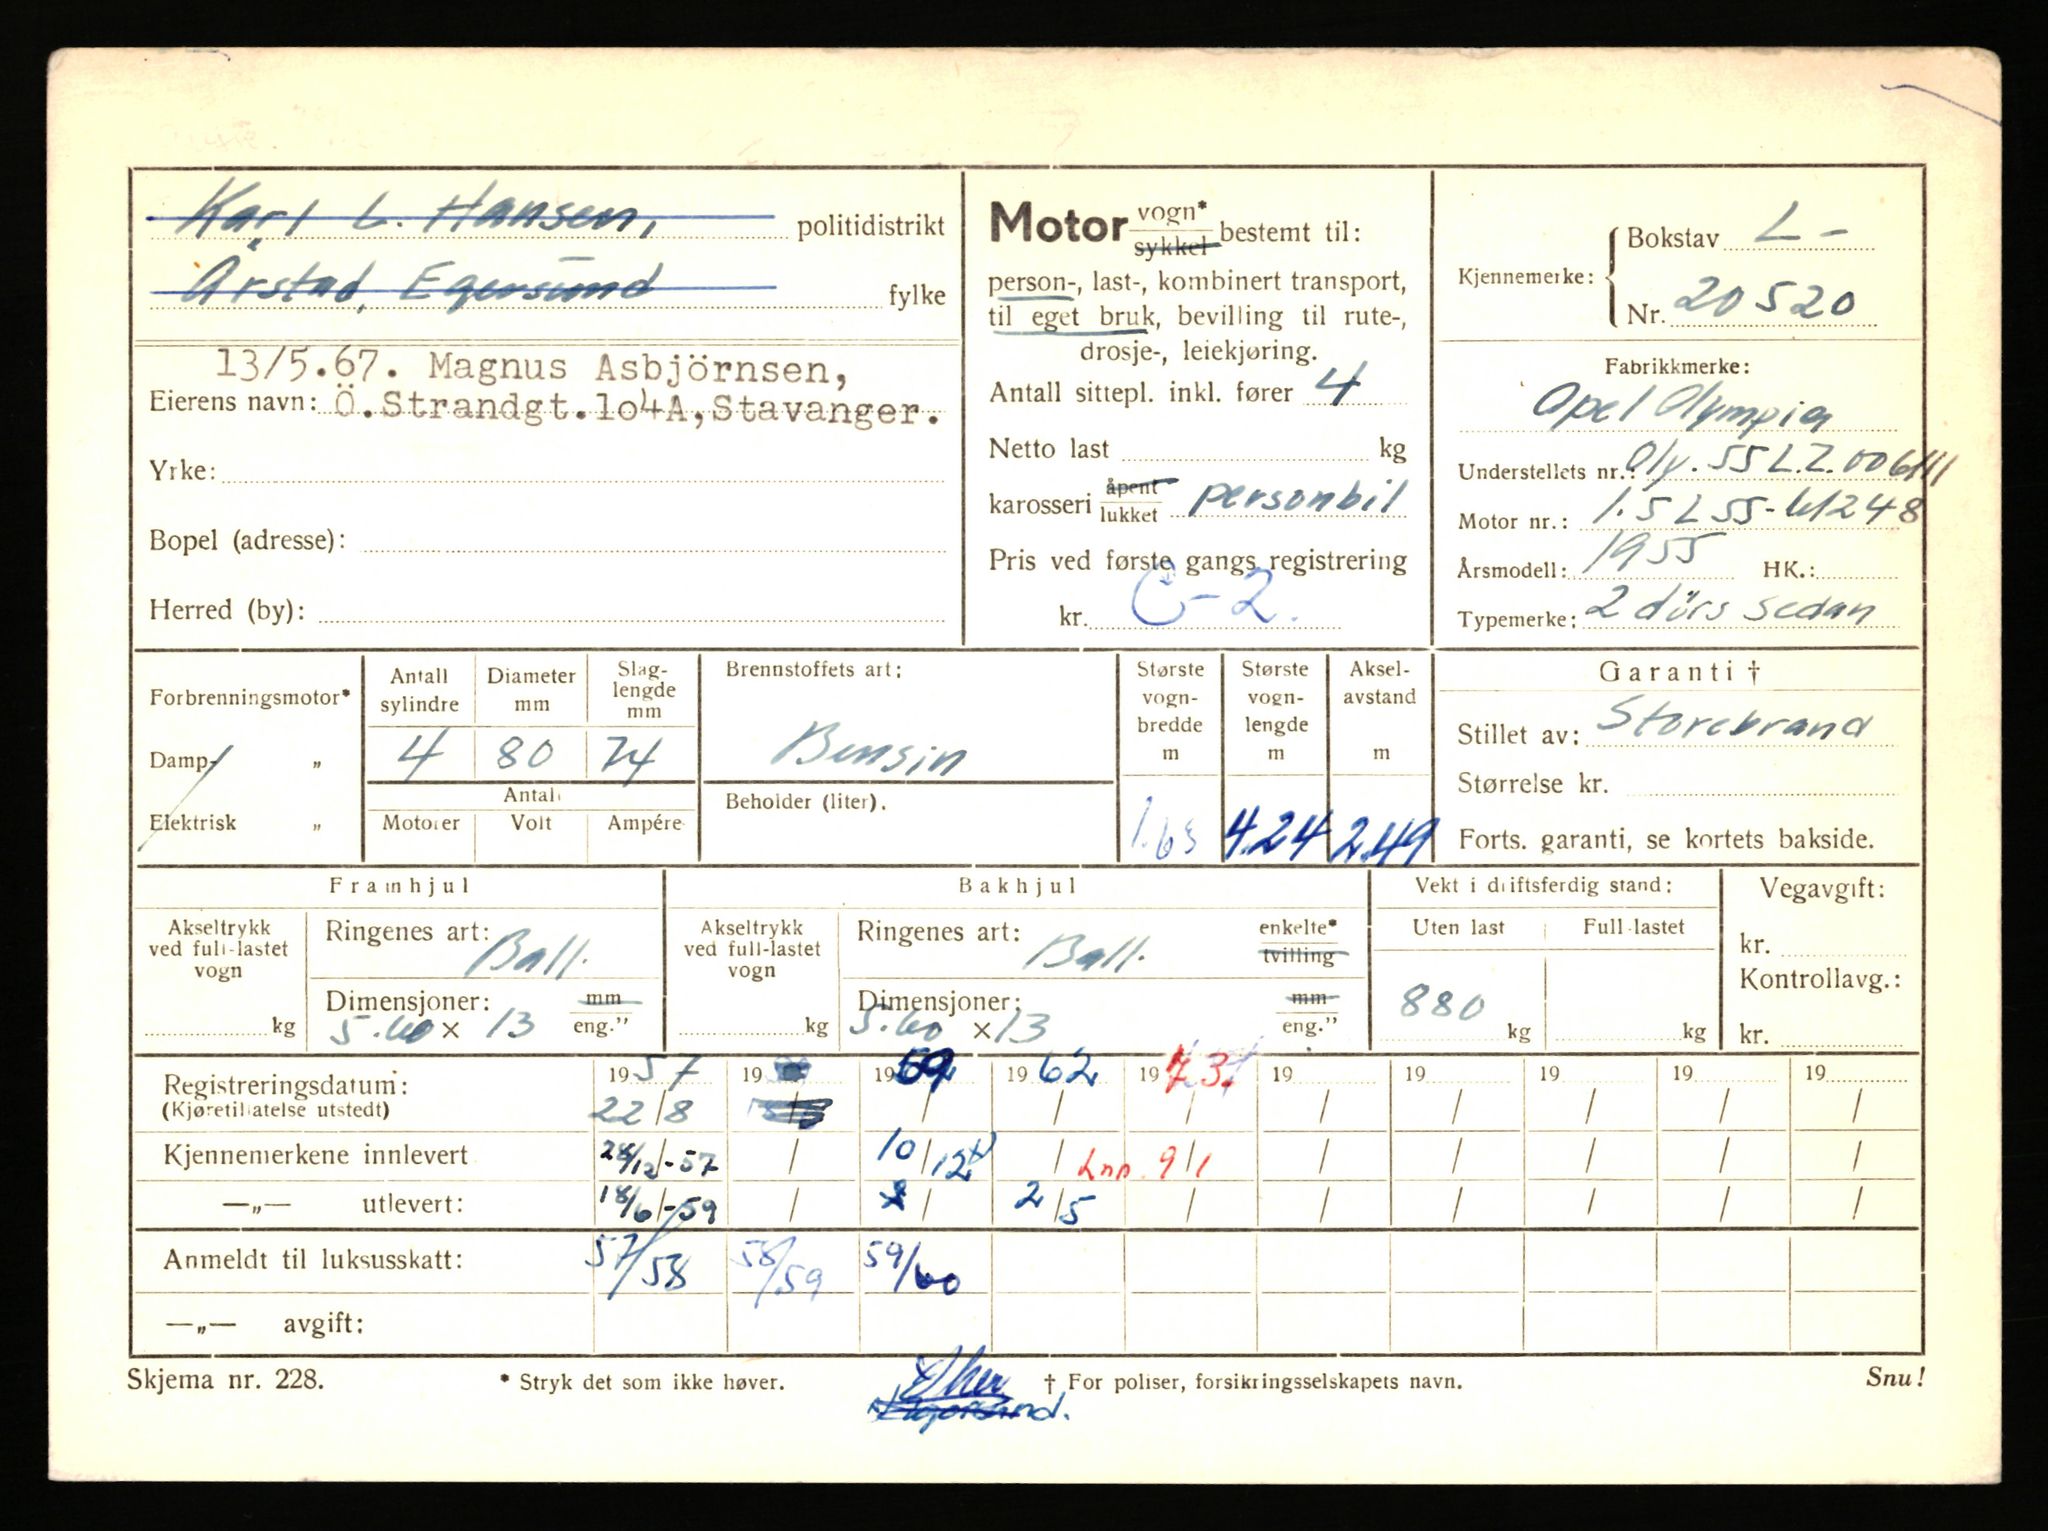 Karl L. Hansen, politidistrikt
Årstad, Egersund fylke
13/5.67. Magnus Asbjörnsen,
Eierens navn: Ö.Strandgt.1o4A,Stavanger.
Yrke:
Bopel (adresse):
Herred (by):
Motor vogn* sykkel bestemt til:
person-, last-, kombinert transport,
til eget bruk, bevilling til rute-,
drosje-, leiekjøring.
Antall sittepl. inkl. fører 4
Netto last kg
karosseri åpent lukket personbil
Pris ved første gangs registrering
kr. C-2.
Kjennemerke: Bokstav L-
Nr. 20520
Fabrikkmerke:
Opel Olympia
Understellets nr.: Oly. 55 L.Z. 006111
Motor nr.: 1.5 L 55-61248
Årsmodell: 1955 HK.:
Typemerke: 2 dörs sedan
Forbrenningsmotor*
Damp- „
Elektrisk „
Antall sylindre Diameter mm Slaglengde mm
4 80 74
Antall
Motorer Volt Ampére
Brennstoffets art:
Bensin
Beholder (liter).
Største vognbredde m Største vognlengde m Akselavstand m
1.63 4.24 2.49
Garanti †
Stillet av: Storebrand
Størrelse kr.
Forts. garanti, se kortets bakside.
Framhjul
Akseltrykk ved full-lastet vogn
kg
Ringenes art: Ball.
Dimensjoner: mm
5.60 × 13 eng.”
Bakhjul
Akseltrykk ved full-lastet vogn
kg
Ringenes art: Ball. enkelte* tvilling
Dimensjoner: mm
5.60 × 13 eng.”
Vekt i driftsferdig stand:
Uten last Full-lastet
880 kg kg
Vegavgift:
kr.
Kontrollavg.:
kr.
Registreringsdatum: 1957 19 19 1962 1973. 19 19 19 19 19
(Kjøretillatelse utstedt) 22/8 / / / / / / / /
Kjennemerkene innlevert 28/12-57 / 10/12 / 9/1 / / / / /
—„— utlevert: 18/6-59 / / 2/5 / / / / / /
Anmeldt til luksusskatt: 57/58 58/59 59/60
—„— avgift:
Skjema nr. 228. * Stryk det som ikke høver. † For poliser, forsikringsselskapets navn. Snu!
Egersund.